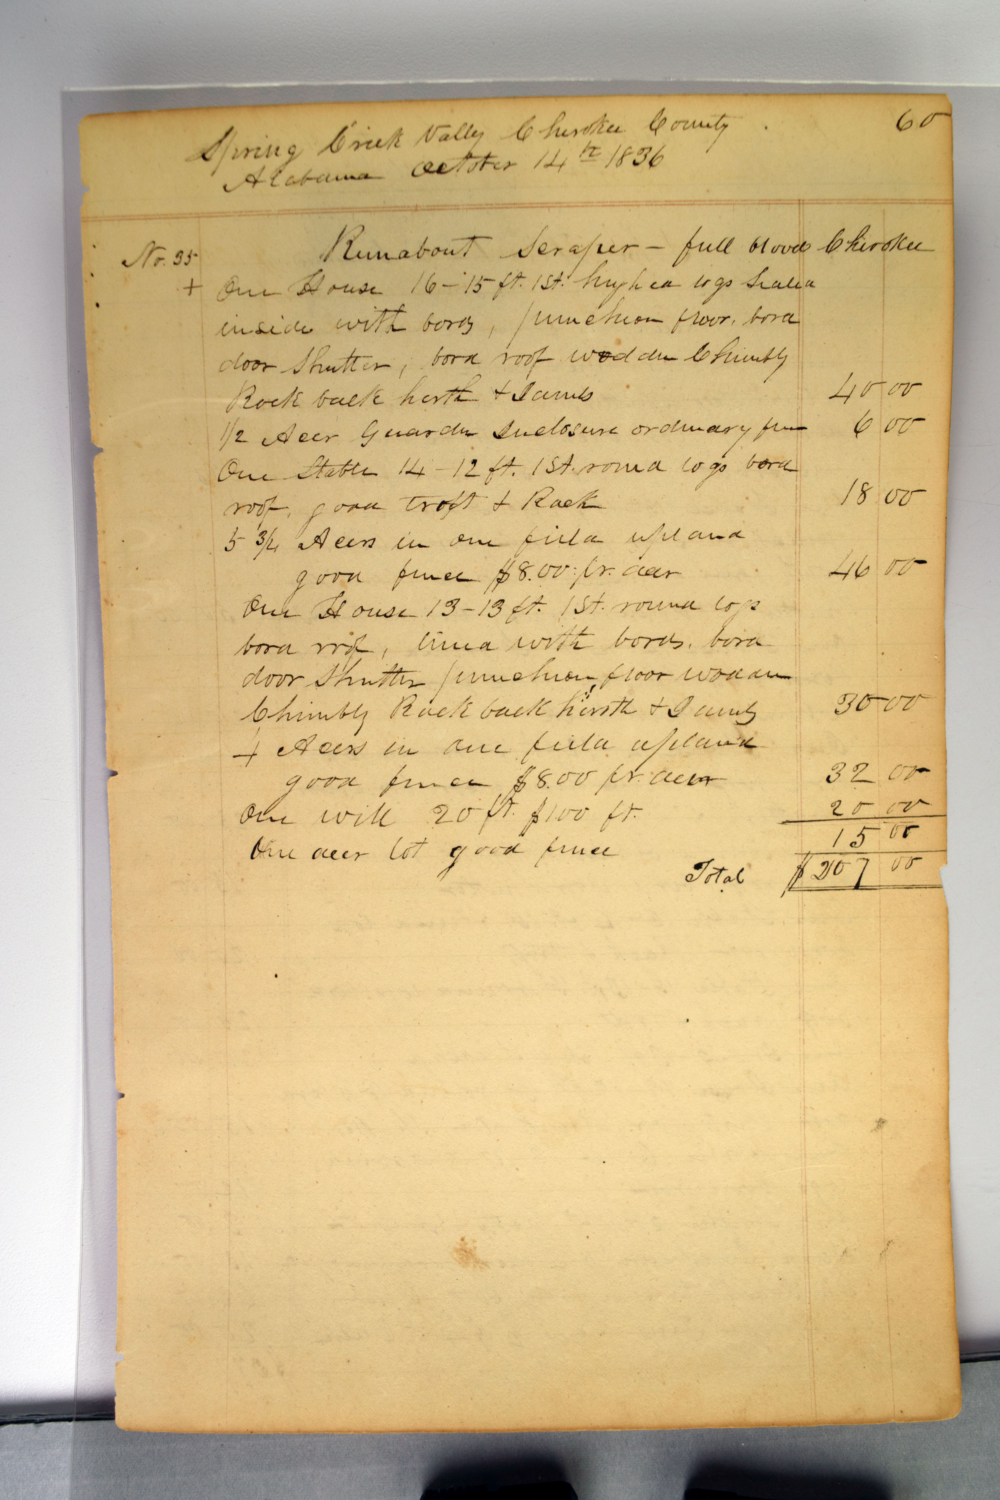 60
Spring Crick Vally Cherokee County
Alabama October 14th 1836
No. 35 Runabout Scraper - full blood Cherokee
+ One House 16-15 ft. 1 St. hughed logs Sealed
inside with bords, puncheon floor, bord
door Shutter, bord roof wodden Chimbly
Rock back herth & Jambs 40 00
1/2 Acer Guarden Inclosure ordinary fence 6 00
One Stable 14-12 ft. 1 St. round logs bord
roof, good troft & Rack 18 00
5 3/4 Acers in one field upland
good fence $8.00 pr. acer 46 00
One House 13-13 ft. 1 St. round logs
bord roof, lined with bords, bord
door Shutter puncheon floor wodden
Chimbly Rock back herth & Jambs 30 00
4 Acers in one field upland
good fence $8.00 pr. acer 32 00
One well 20 ft. $100 ft. 20 00
One acer lot good fence 15 00
Total $207 00